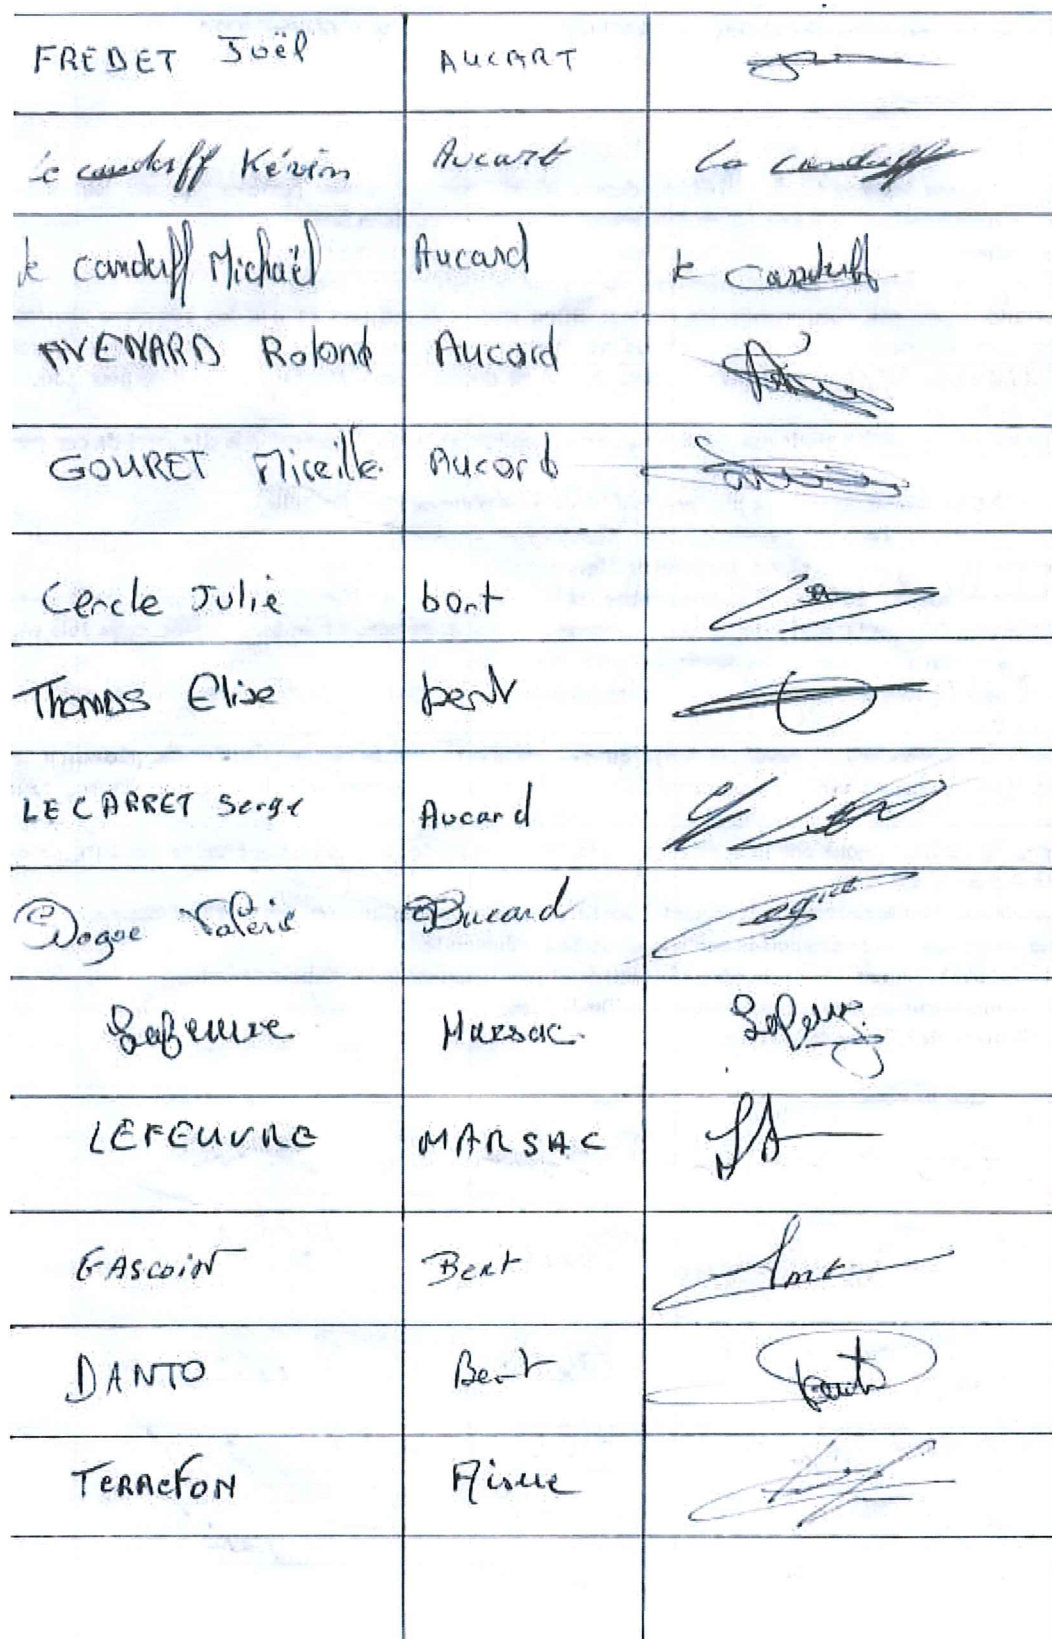 FREDET Joël AUCART
Le canduff Kévin Aucart Le canduff
le canduff Michaël Aucard le canduff
AVENARD Roland Aucard
GOURET Mireille Aucard
Cercle Julie bert
Thomas Elise bert
LE CARRET Serge Aucard
Dogue Valérie Aucard
Lefeuvre Marsac
LEFEUVRE MARSAC
GASCOIN Bert
DANTO Bert
TERREFON